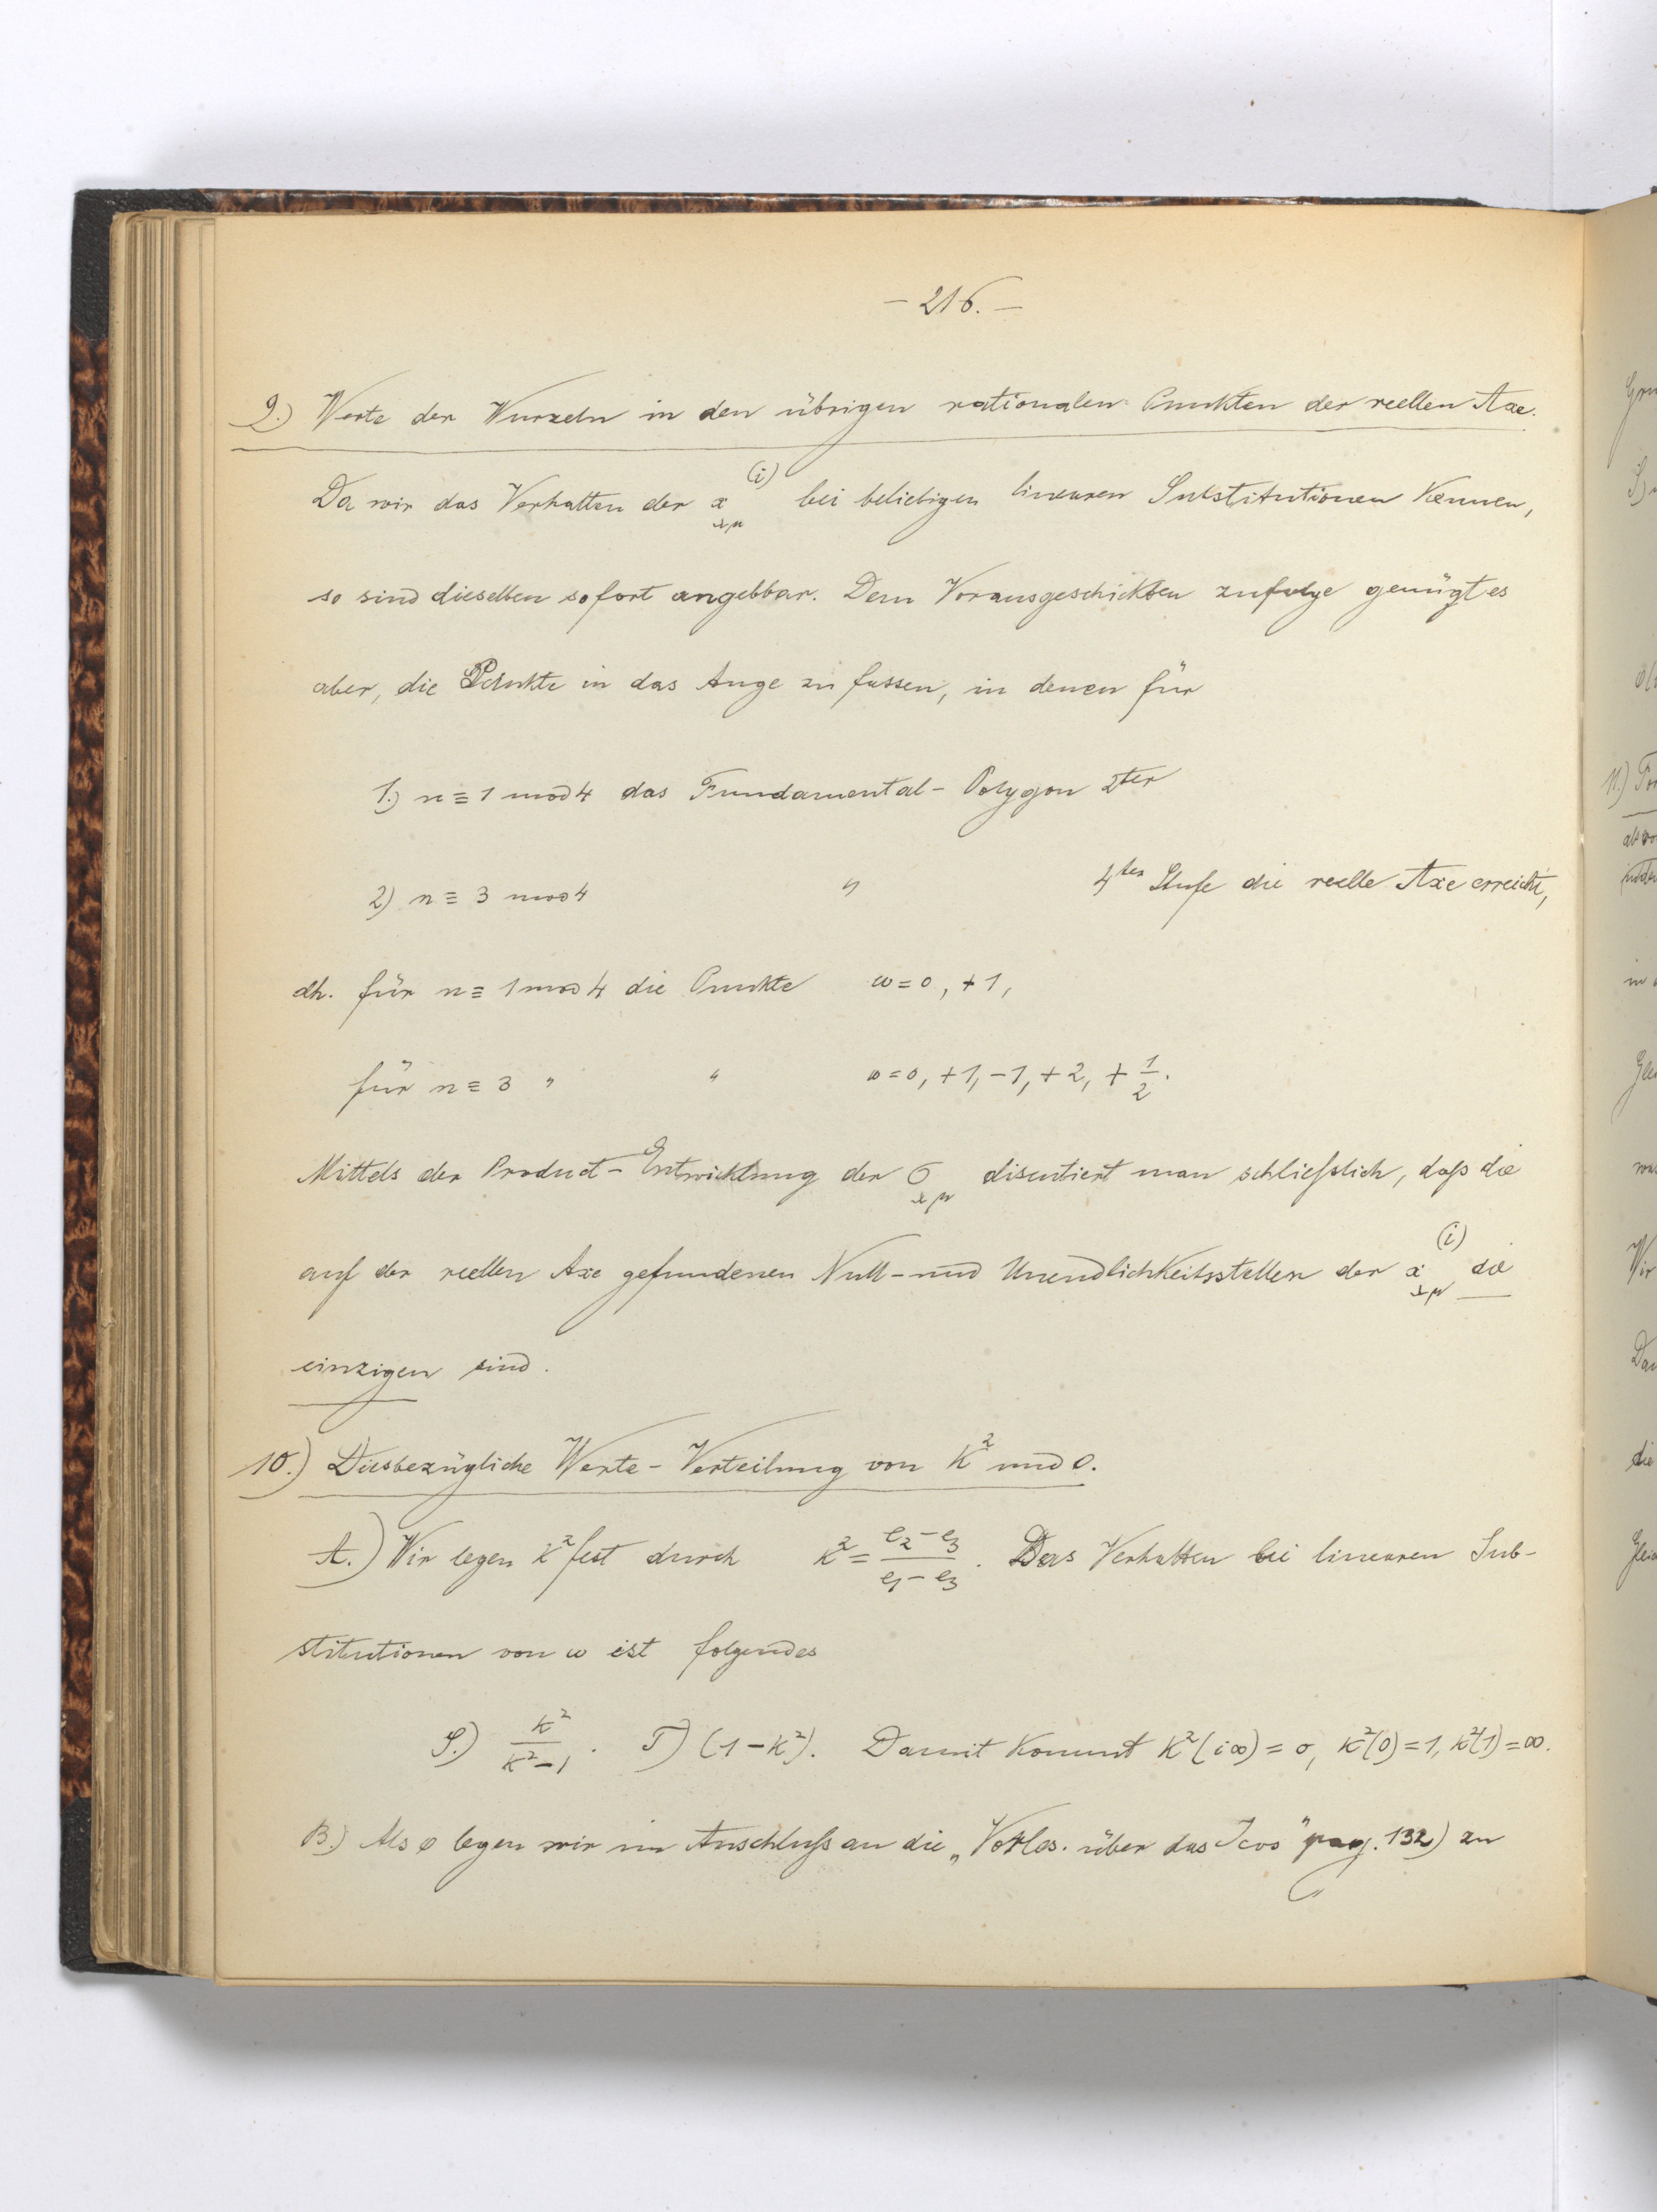 – 216. –
9.) Werte der Wurzeln in den übrigen rationalen Punkten der reellen Axe.
Da wir das Verhalten der x_{λμ}^{(i)} bei beliebigen linearen Substitutionen kennen,
so sind dieselben sofort angebbar. Dem Vorausgeschickten zufolge genügt es
aber, die Punkte in das Auge zu fassen, in denen für
1.) n ≡ 1 mod 4 das Fundamental-Polygon 2ter
2) n ≡ 3 mod 4 " 4ter Stufe die reelle Axe erreicht,
dh. für n ≡ 1 mod 4 die Punkte ω = 0, +1,
für n ≡ 3 " " ω = 0, +1, -1, +2, + 1/2.
Mittels der Product-Entwicklung der σ_{λμ} discutiert man schließlich, daß die
auf der reellen Axe gefundenen Null- und Unendlichkeitsstellen der x_{λμ}^{(i)} die
einzigen sind.
10.) Diesbezügliche Werte-Verteilung von K² und O.
A.) Wir legen K² fest durch K² = (e₂ - e₃)/(e₁ - e₃). Das Verhalten bei linearen Sub-
stitutionen von ω ist folgendes
S.) K²/(K²-1). T) (1-K²). Damit kommt K²(i∞) = 0, K²(0) = 1, K²(1) = ∞.
B.) Als O legen wir im Anschluß an die „Vorles. über das Icos" pag. 132) zu